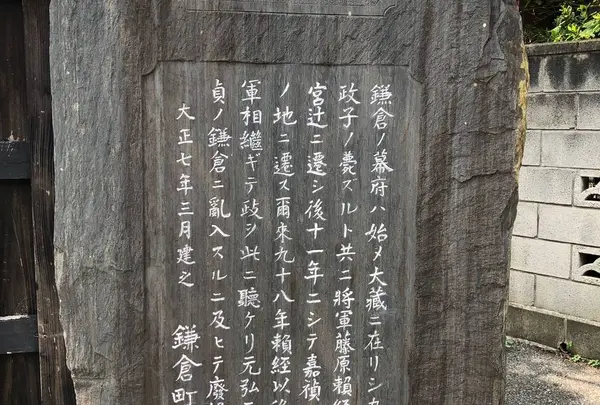 鎌倉ノ幕府ハ始メ大藏ニ在リシカ
政子ノ薨ズルト共ニ將軍藤原賴経
宮辻ニ遷シ後十一年ニシテ嘉禎
ノ地ニ遷ス爾來九十八年賴経以後
軍相繼ギテ政ヲ此ニ聽ケリ元弘
貞ノ鎌倉ニ亂入スルニ及ヒテ廢
大正七年三月建之
鎌倉町